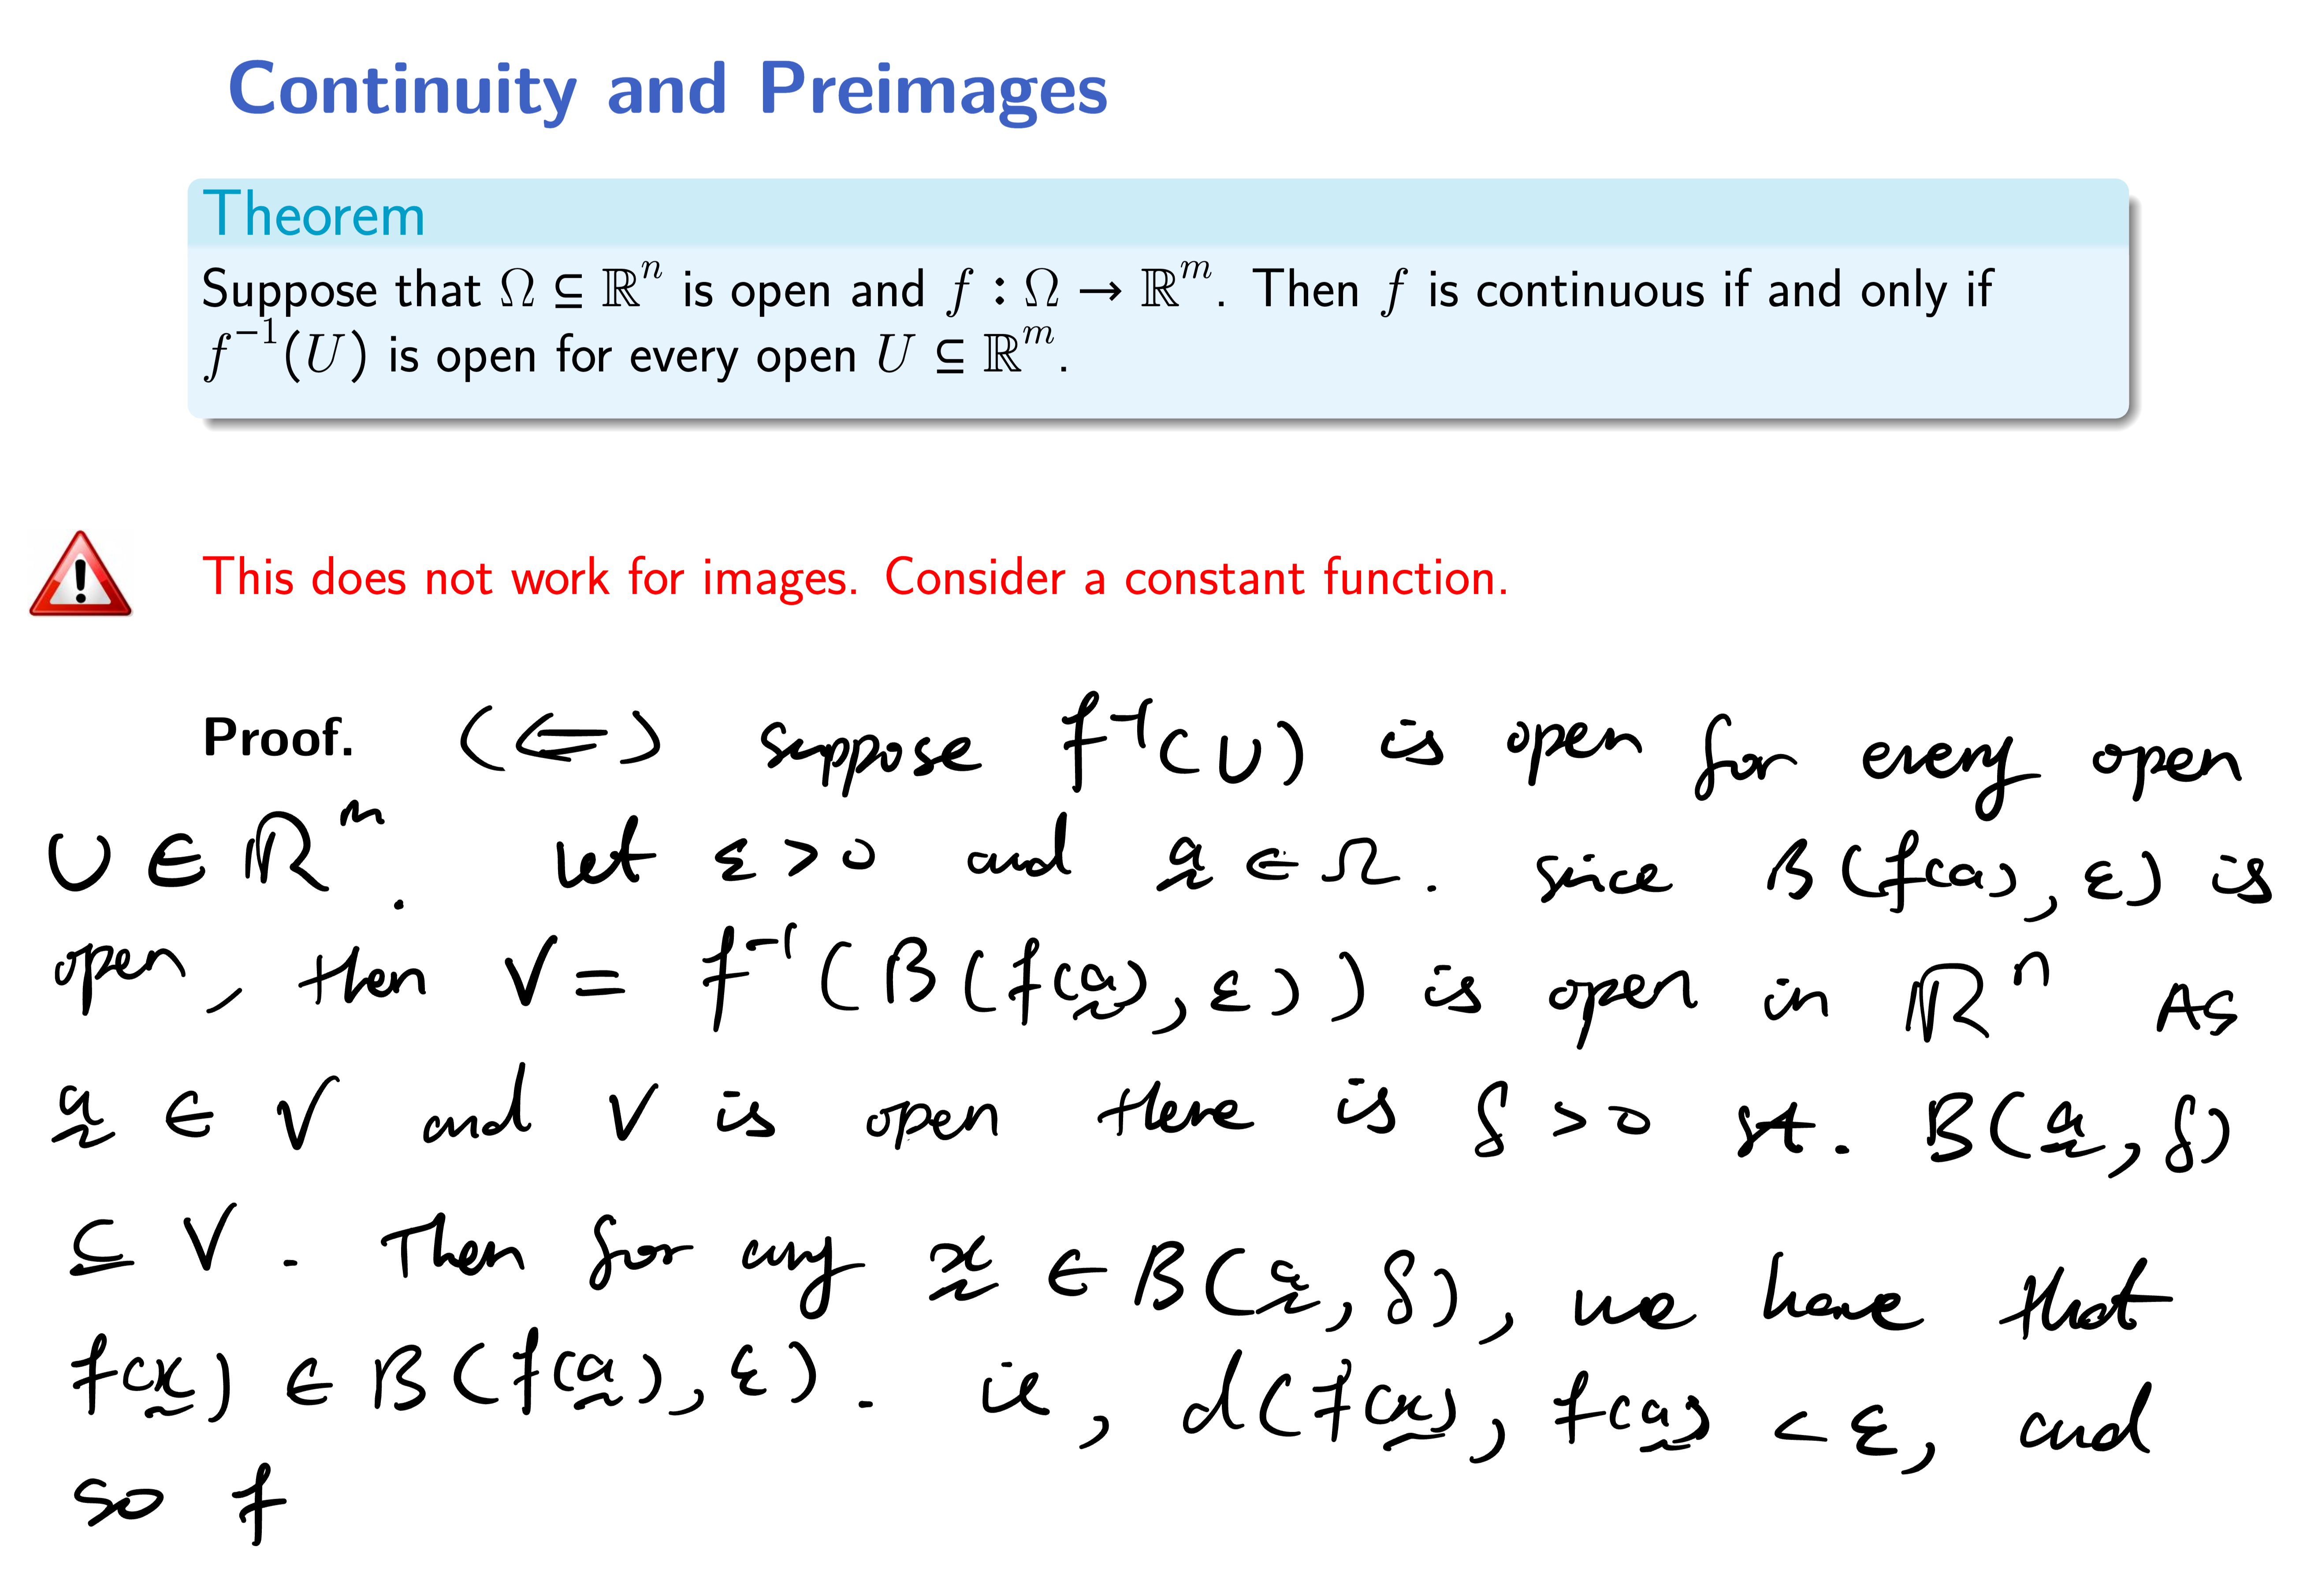 Continuity and Preimages
Theorem
Suppose that Ω ⊆ ℝⁿ is open and f : Ω → ℝᵐ. Then f is continuous if and only if
f⁻¹(U) is open for every open U ⊆ ℝᵐ.
This does not work for images. Consider a constant function.
Proof. (⇐) suppose f⁻¹(U) is open for every open
U ∈ ℝᵐ. let ε > 0 and a̰ ∈ Ω. since B(f(a), ε) is
open, then V = f⁻¹(B(f(a̰), ε)) is open in ℝⁿ As
a̰ ∈ V and V is open there is δ > 0 st. B(a̰, δ)
⊆ V. Then for any x̰ ∈ B(a̰, δ), we have that
f(x̰) ∈ B(f(a̰), ε). ie, d(f(x̰), f(a̰) < ε, and
so f